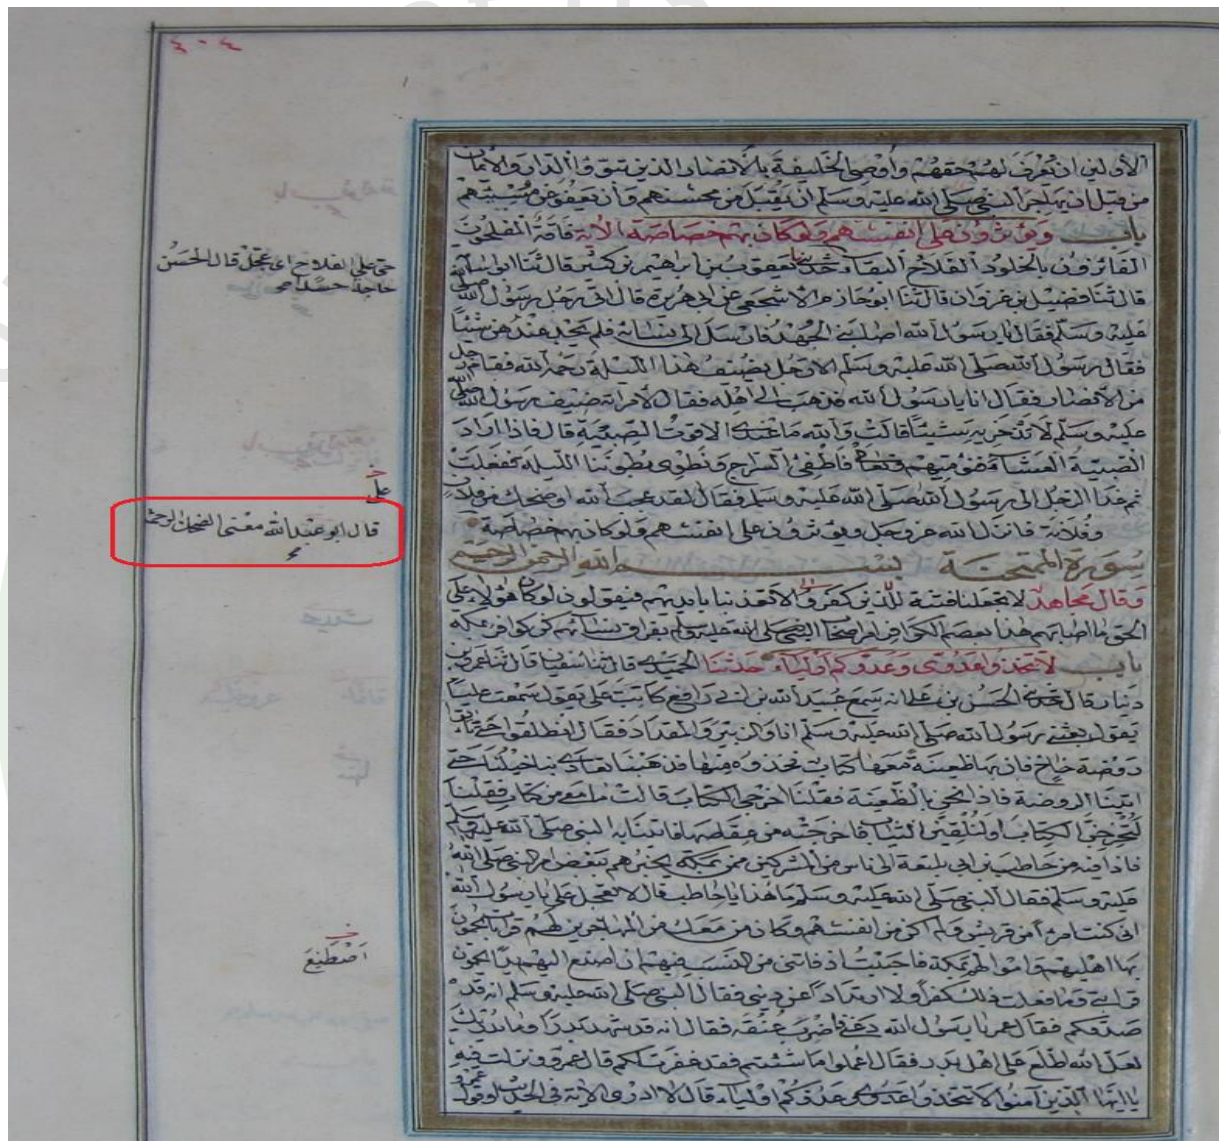 ٤٠٤
الاولين ان يعرف لهم حقهم وأوصى الخليفة بالانصار الذين تبوؤا الدار والايمان
من قبل ان يهاجر النبي صلى الله عليه وسلم ان يقبل من محسنهم وأن يعفو عن مسيئهم
باب ويؤثرون على انفسهم ولو كان بهم خصاصة الآية فاقة المفلحون
الفائزون بالخلود الفلاح البقاء حدثنا يعقوب بن ابراهيم بن كثير قال ثنا ابو اسامة
حي على الفلاح اي عجل قال الحسن
حاجة حسدا
قال ثنا فضيل بن غزوان قال ثنا ابو حازم الاشجعي عن ابي هريرة قال اتى رجل رسول الله صلى
عليه وسلم فقال يا رسول الله اصابني الجهد فارسل الى نسائه فلم يجد عندهن شيئا
فقال رسول الله صلى الله عليه وسلم الا رجل يضيف هذا الليلة رحمه الله فقام رجل
من الانصار فقال انا يا رسول الله فذهب الى اهله فقال لامراته ضيف رسول الله صلى الله
عليه وسلم لا تدخريه شيئا قالت والله ما عندي الا قوت الصبية قال فاذا اراد
الصبية العشاء فنوميهم وتعالي فاطفئي السراج ونطوي بطوننا الليلة ففعلت
ثم غدا الرجل الى رسول الله صلى الله عليه وسلم فقال لقد عجب الله او ضحك من فلان
على
قال ابو عبدالله معنى الضحك الرحمة
وفلانة فانزل الله عز وجل ويؤثرون على انفسهم ولو كان بهم خصاصة
سورة الممتحنة بسم الله الرحمن الرحيم
وقال مجاهد لا تجعلنا فتنة للذين كفروا لا تعذبنا بايديهم فيقولون لو كان هؤلاء على
الحق ما اصابهم هذا بعصم الكوافر امر اصحاب النبي صلى الله عليه وسلم بفراق نسائهم كن كوافر بمكة
باب لا تتخذوا عدوي وعدوكم أولياء حدثنا الحميدي قال ثنا سفيان قال ثنا عمرو بن
دينار قال حدثني الحسن بن محمد بن علي انه سمع عبيد الله بن ابي رافع كاتب علي يقول سمعت عليا
يقول بعثني رسول الله صلى الله عليه وسلم انا والزبير والمقداد فقال انطلقوا حتى تاتوا
روضة خاخ فان بها ظعينة معها كتاب فخذوه منها فذهبنا تعادى بنا خيلنا حتى
اتينا الروضة فاذا نحن بالظعينة فقلنا اخرجي الكتاب قالت ما معي من كتاب فقلنا
لتخرجن الكتاب او لنلقين الثياب فاخرجته من عقاصها فاتينا به النبي صلى الله عليه وسلم
فاذا فيه من حاطب بن ابي بلتعة الى ناس من المشركين ممن بمكة يخبرهم ببعض امر النبي صلى الله
عليه وسلم فقال النبي صلى الله عليه وسلم ما هذا يا حاطب قال لا تعجل علي يا رسول الله
اني كنت امرءا من قريش ولم اكن من انفسهم وكان من معك من المهاجرين لهم قرابات يحمون
بها اهليهم واموالهم بمكة فاحببت اذ فاتني من النسب فيهم ان اصنع اليهم يدا يحمون
اصطنع
قرابتي وما فعلت ذلك كفرا ولا ارتدادا عن ديني فقال النبي صلى الله عليه وسلم انه قد
صدقكم فقال عمر يا رسول الله دعني فاضرب عنقه فقال انه قد شهد بدرا وما يدريك
لعل الله اطلع على اهل بدر فقال اعملوا ما شئتم فقد غفرت لكم قال عمرو ونزلت فيه
يا ايها الذين آمنوا لا تتخذوا عدوي وعدوكم أولياء قال لا ادري الآية في الحديث او قول عمرو